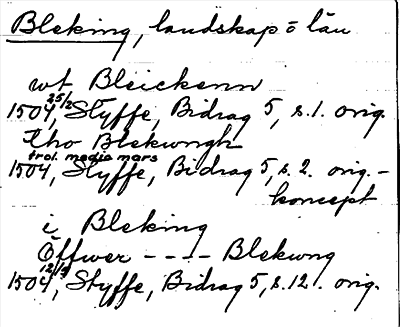 Bleking, landskap o län
wt Bleickenn
1504 25/2, Styffe, Bidrag 5, s. 1. orig.
tho Blekwngh
1504 trol. media mars, Styffe, Bidrag 5, s. 2. orig. -
koncept
i Bleking
Öffwer - - - - Blekwng
1504 12/9, Styffe, Bidrag 5, s. 12. orig.